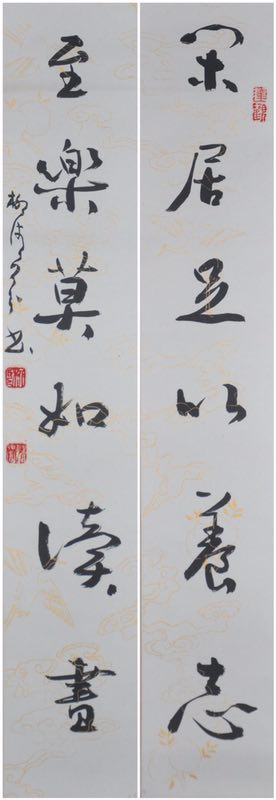 閑居足以養志
至樂莫如讀書
書